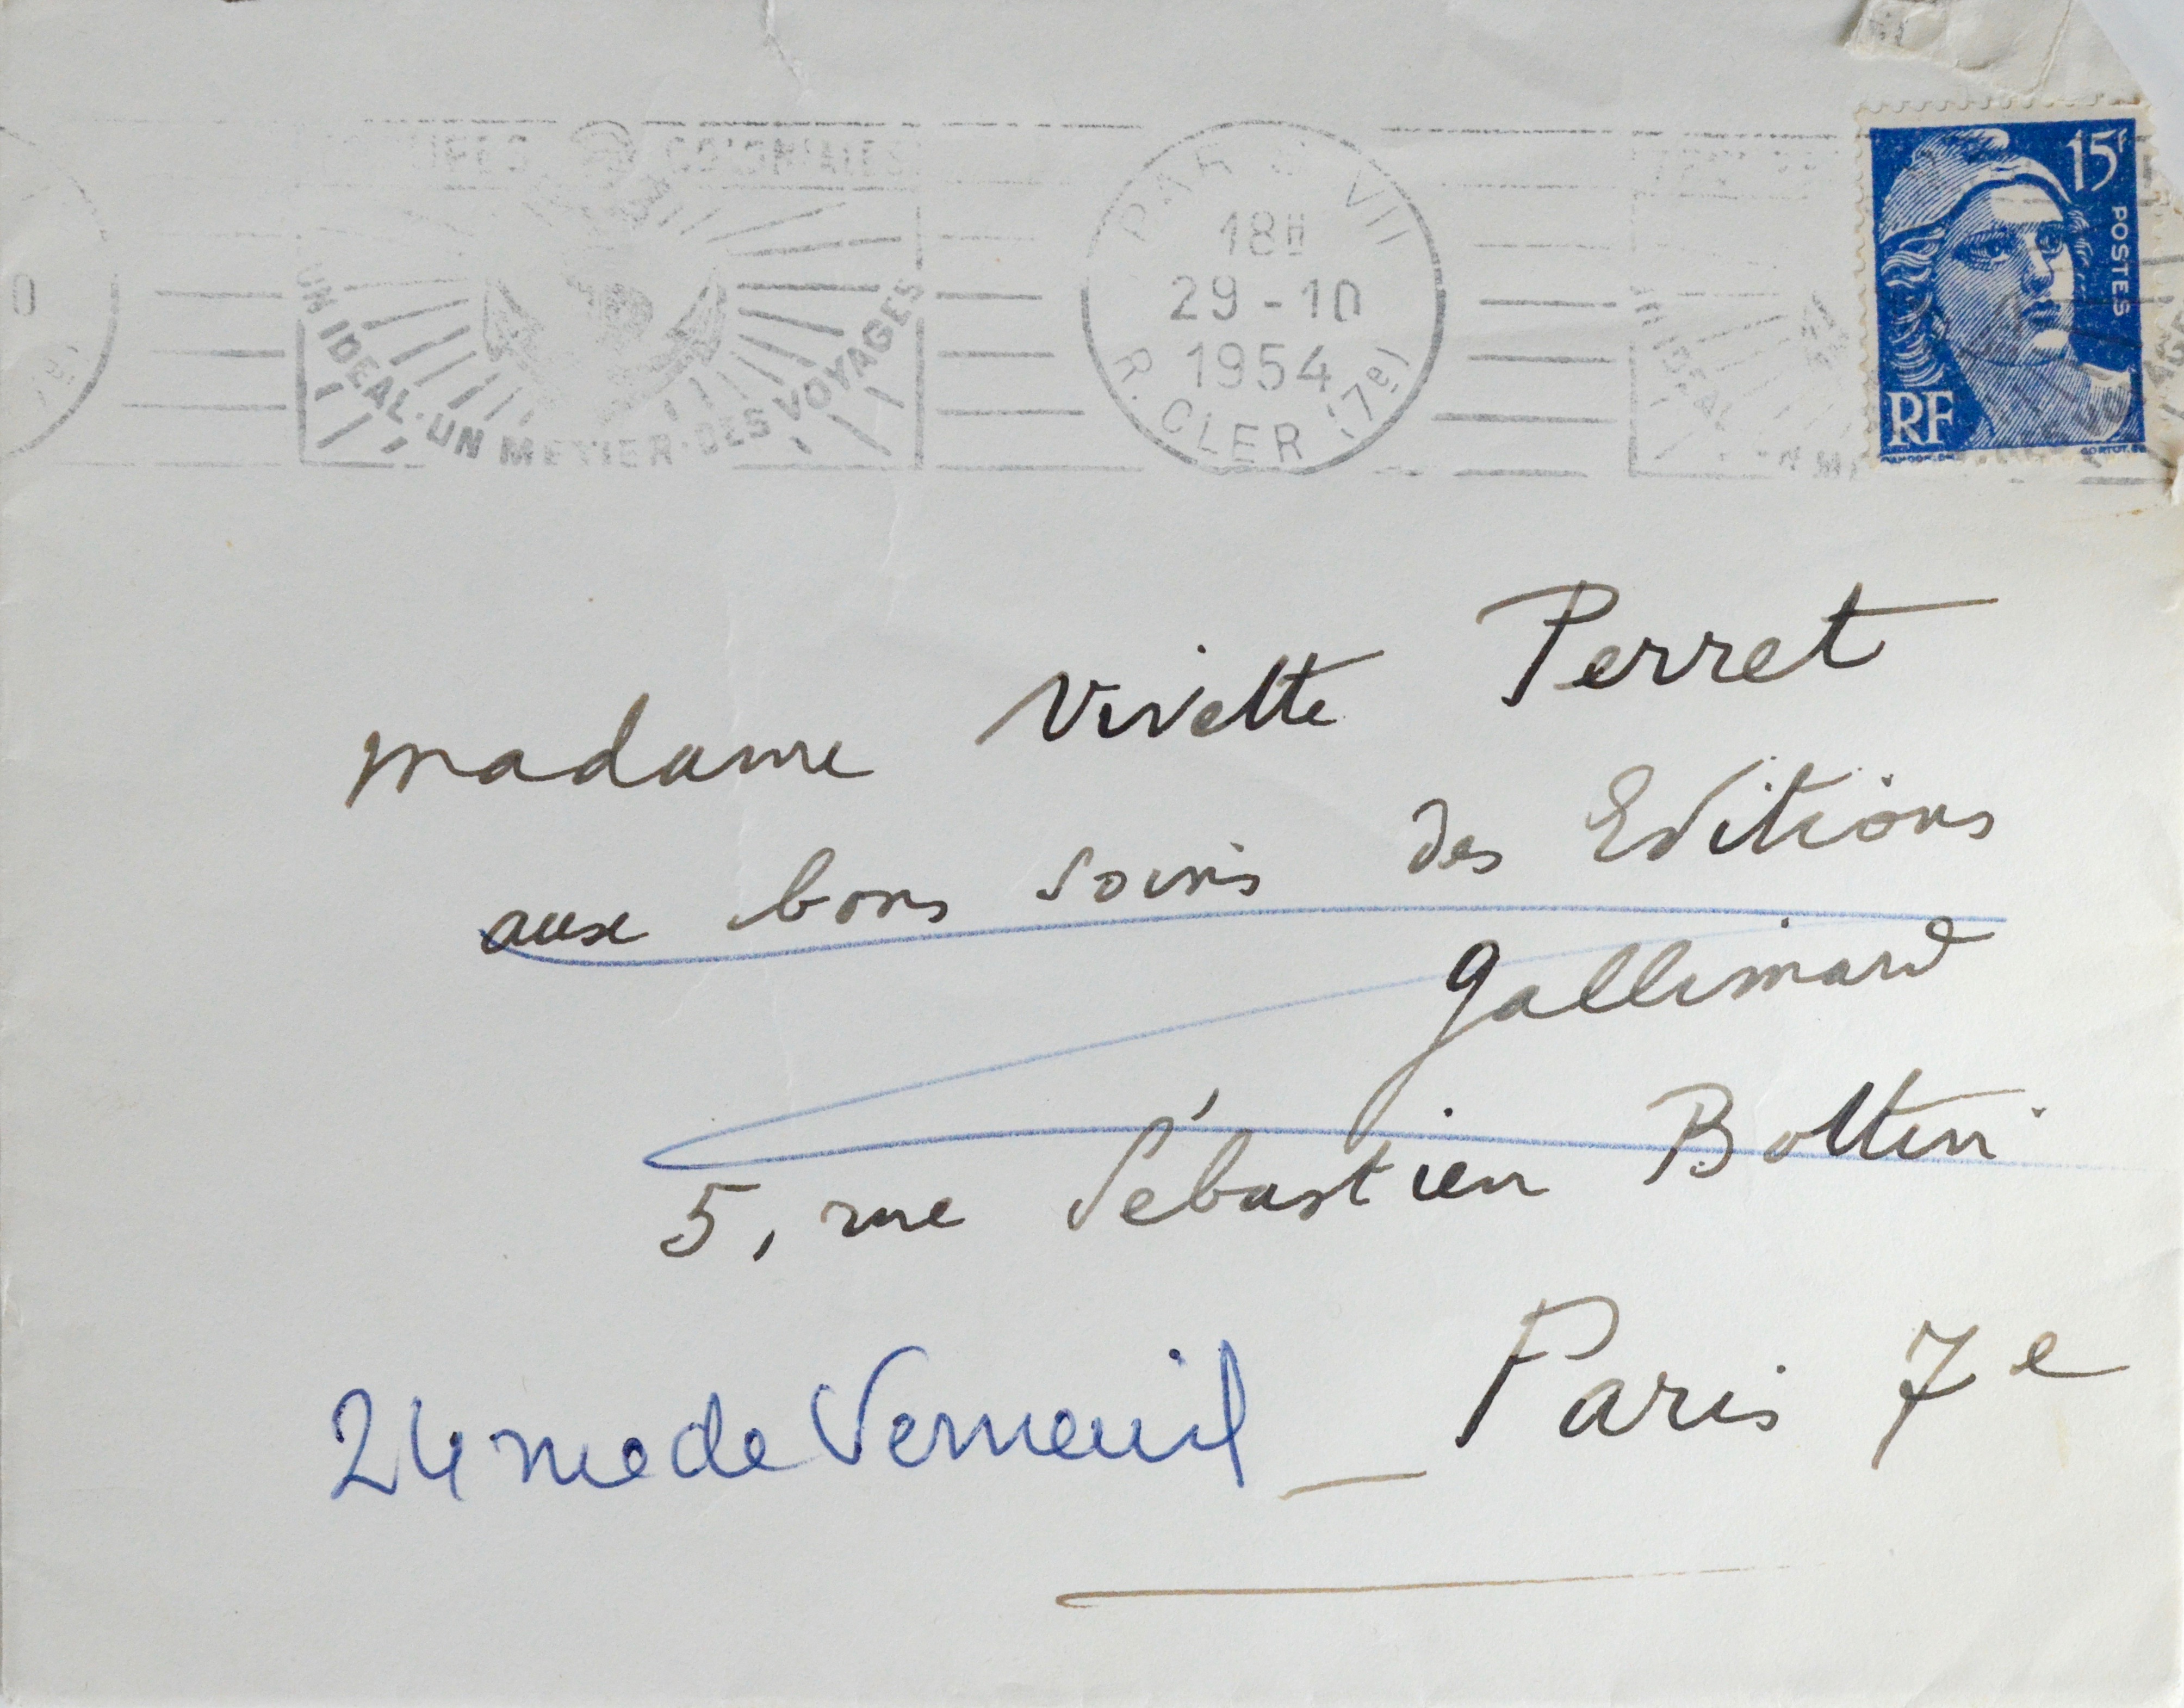 COLONIALES
UN IDEAL. UN METIER. DES VOYAGES
PARIS VII
18H
29-10
1954
R. CLER (7e)
UN IDEAL
15f
POSTES
RF
madame Vivette Perret
aux bons soins des Editions
Gallimard
5, rue Sébastien Bottin
24 rue de Verneuil _ Paris 7e